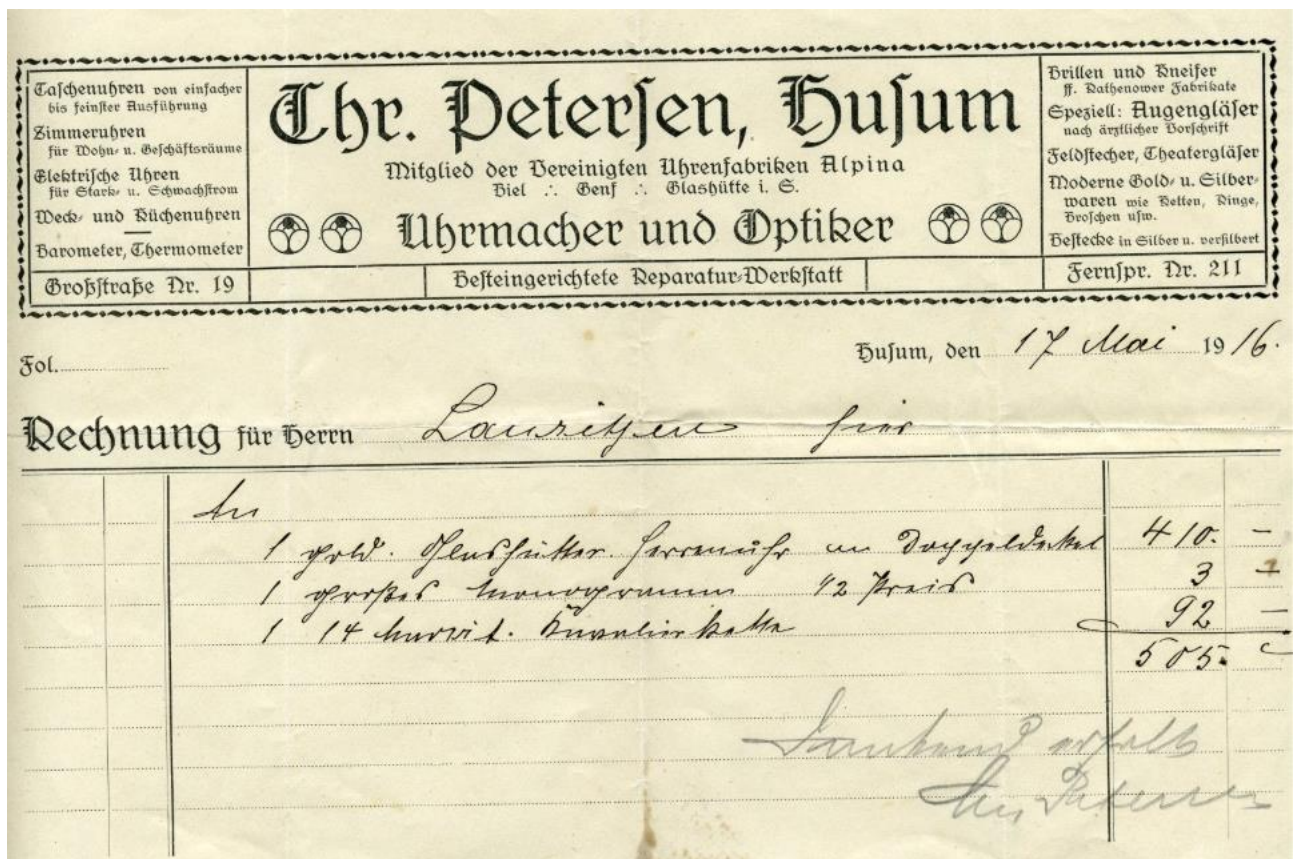 Taschenuhren von einfacher
bis feinster Ausführung
Zimmeruhren
für Wohn- u. Geschäftsräume
Elektrische Uhren
für Stark- u. Schwachstrom
Weck- und Küchenuhren
Barometer, Thermometer
Großstraße Nr. 19
Chr. Petersen, Husum
Mitglied der Vereinigten Uhrenfabriken Alpina
Biel ∴ Genf ∴ Glashütte i. S.
Uhrmacher und Optiker
Besteingerichtete Reparatur-Werkstatt
Brillen und Kneifer
ff. Rathenower Fabrikate
Speziell: Augengläser
nach ärztlicher Vorschrift
Feldstecher, Theatergläser
Moderne Gold- u. Silber-
waren wie Ketten, Ringe,
Broschen usw.
Bestecke in Silber u. versilbert
Fernspr. Nr. 211
Fol.
Husum, den 17 Mai 1916.
Rechnung für Herrn Lauritzen hier
An
1 gold. Glashütter. Herrenuhr m Doppeldeckel 410. –
1 großes Monogramm 1/2 Preis 3 –
1 14 karät. Kavalierkette 92 –
505.
Dankend erhalten
Chr Petersen